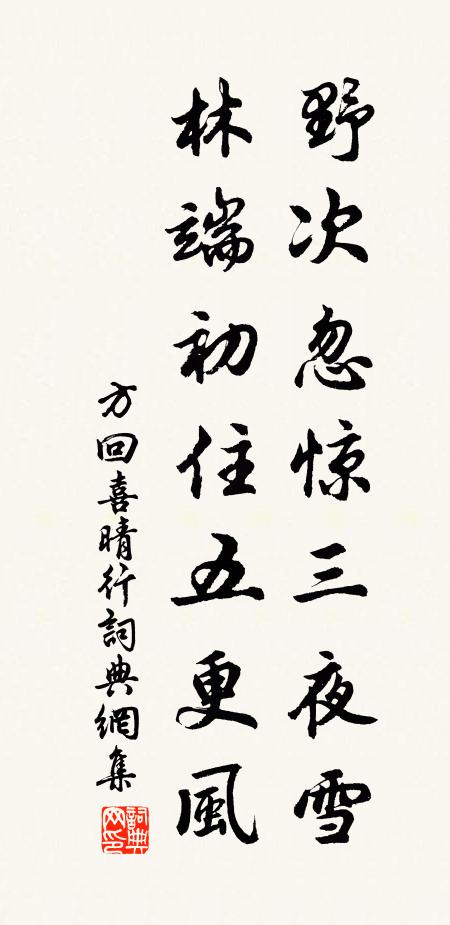 野次忽惊三夜雪
林端初住五更風
方回喜晴行詞典網集
詞典网印